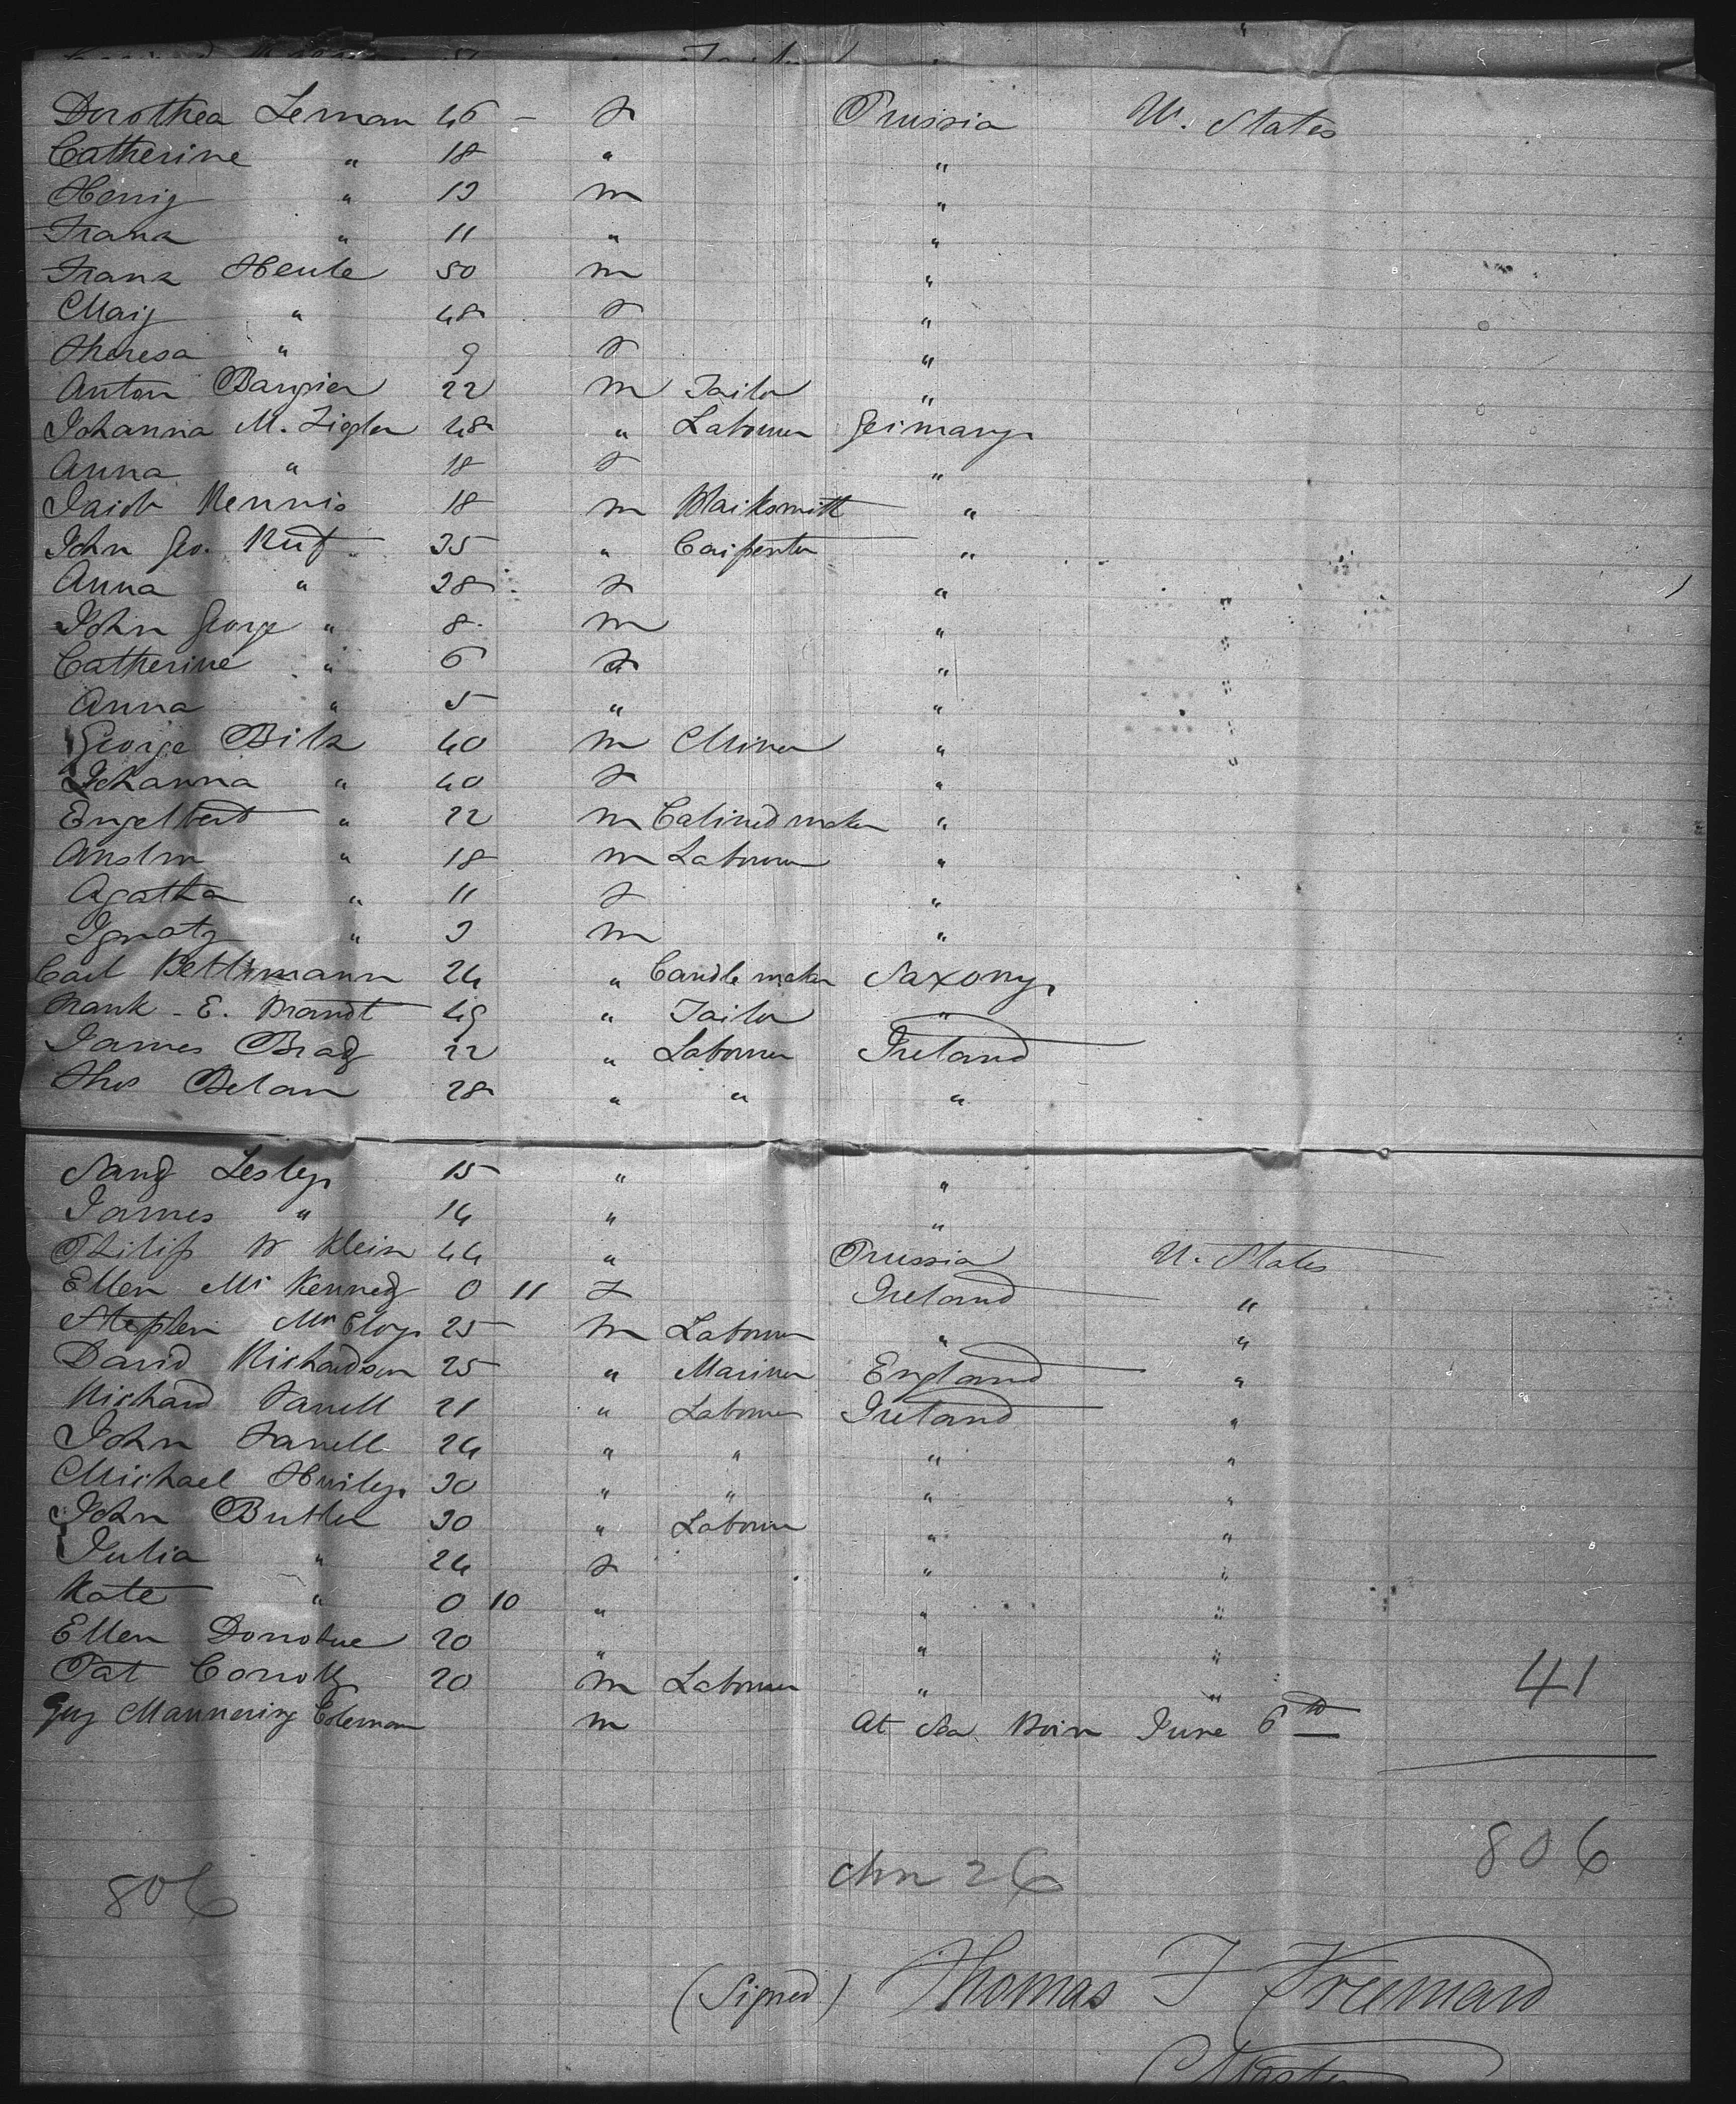 Dorothea Leman 46 - f Prussia U. States
Catherine " 18 " "
Henry " 13 m "
Frank " 11 " "
Frank Henle 50 m "
Mary " 48 f "
Theresa " 9 f "
Anton 22 m Tailor "
Johanna M. Ziegler 48 " Labourer Germany
Anna " 18 f "
Jacob Rennis 18 m Blacksmith "
John Geo. Ruf 35 " Carpenter "
Anna " 38 f "
John George " 8 m "
Catherine " 6 f "
Anna " 5 " "
George Bilz 40 m Miner "
Johanna " 40 f "
Engelbert " 22 m Cabinedmaker "
Anslm " 18 m Labourer "
Agatha " 11 f "
Ignatz " 3 m "
Carl Bethmann 24 " Candle maker Saxony
Frank E. Brandt 49 " Tailor "
James Brady 22 " Labourer Ireland
Thos Belan 28 " " "
Sandy Lesley 15 " "
James " 14 " "
Philip W Klein 44 " Prussia U. States
Ellen Mc Kennedy 0 11 f Ireland "
Stephen McCloy 25 m Labourer " "
David Richardson 25 " Mariner England "
Richard Farrell 21 " Labourer Ireland "
John Farrell 24 " " " "
Michael Hurley 30 " " " "
John Butler 30 " Labourer " "
Julia " 24 f " "
Kate " 0 10 " " "
Ellen Donohue 20 " " "
Pat Connolly 20 m Labourer " "
41
Guy Mannering Coleman m At Sea Born June 6th
806
chn 26
806
(Signed) Thomas F Freeman
Master